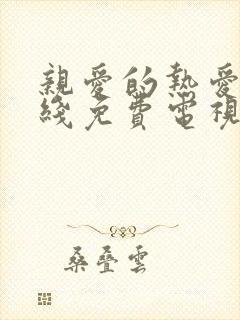 親愛的熱愛
綫免費電視
桑疊雲